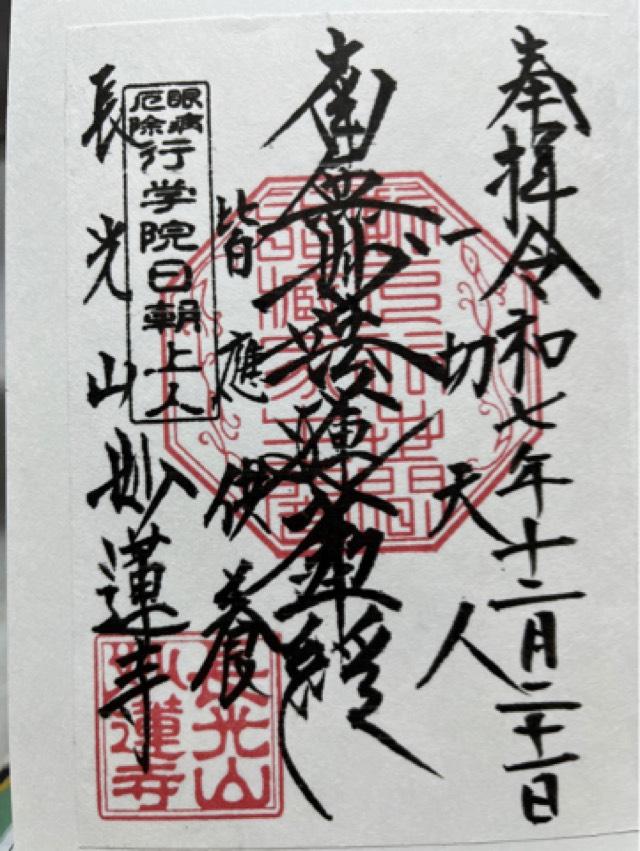 奉拝令和七年十二月二十一日
一切天人
南無妙法蓮華經
皆應供養
眼病
厄除
行学院日朝上人
長光山妙蓮寺
長光山
妙蓮寺